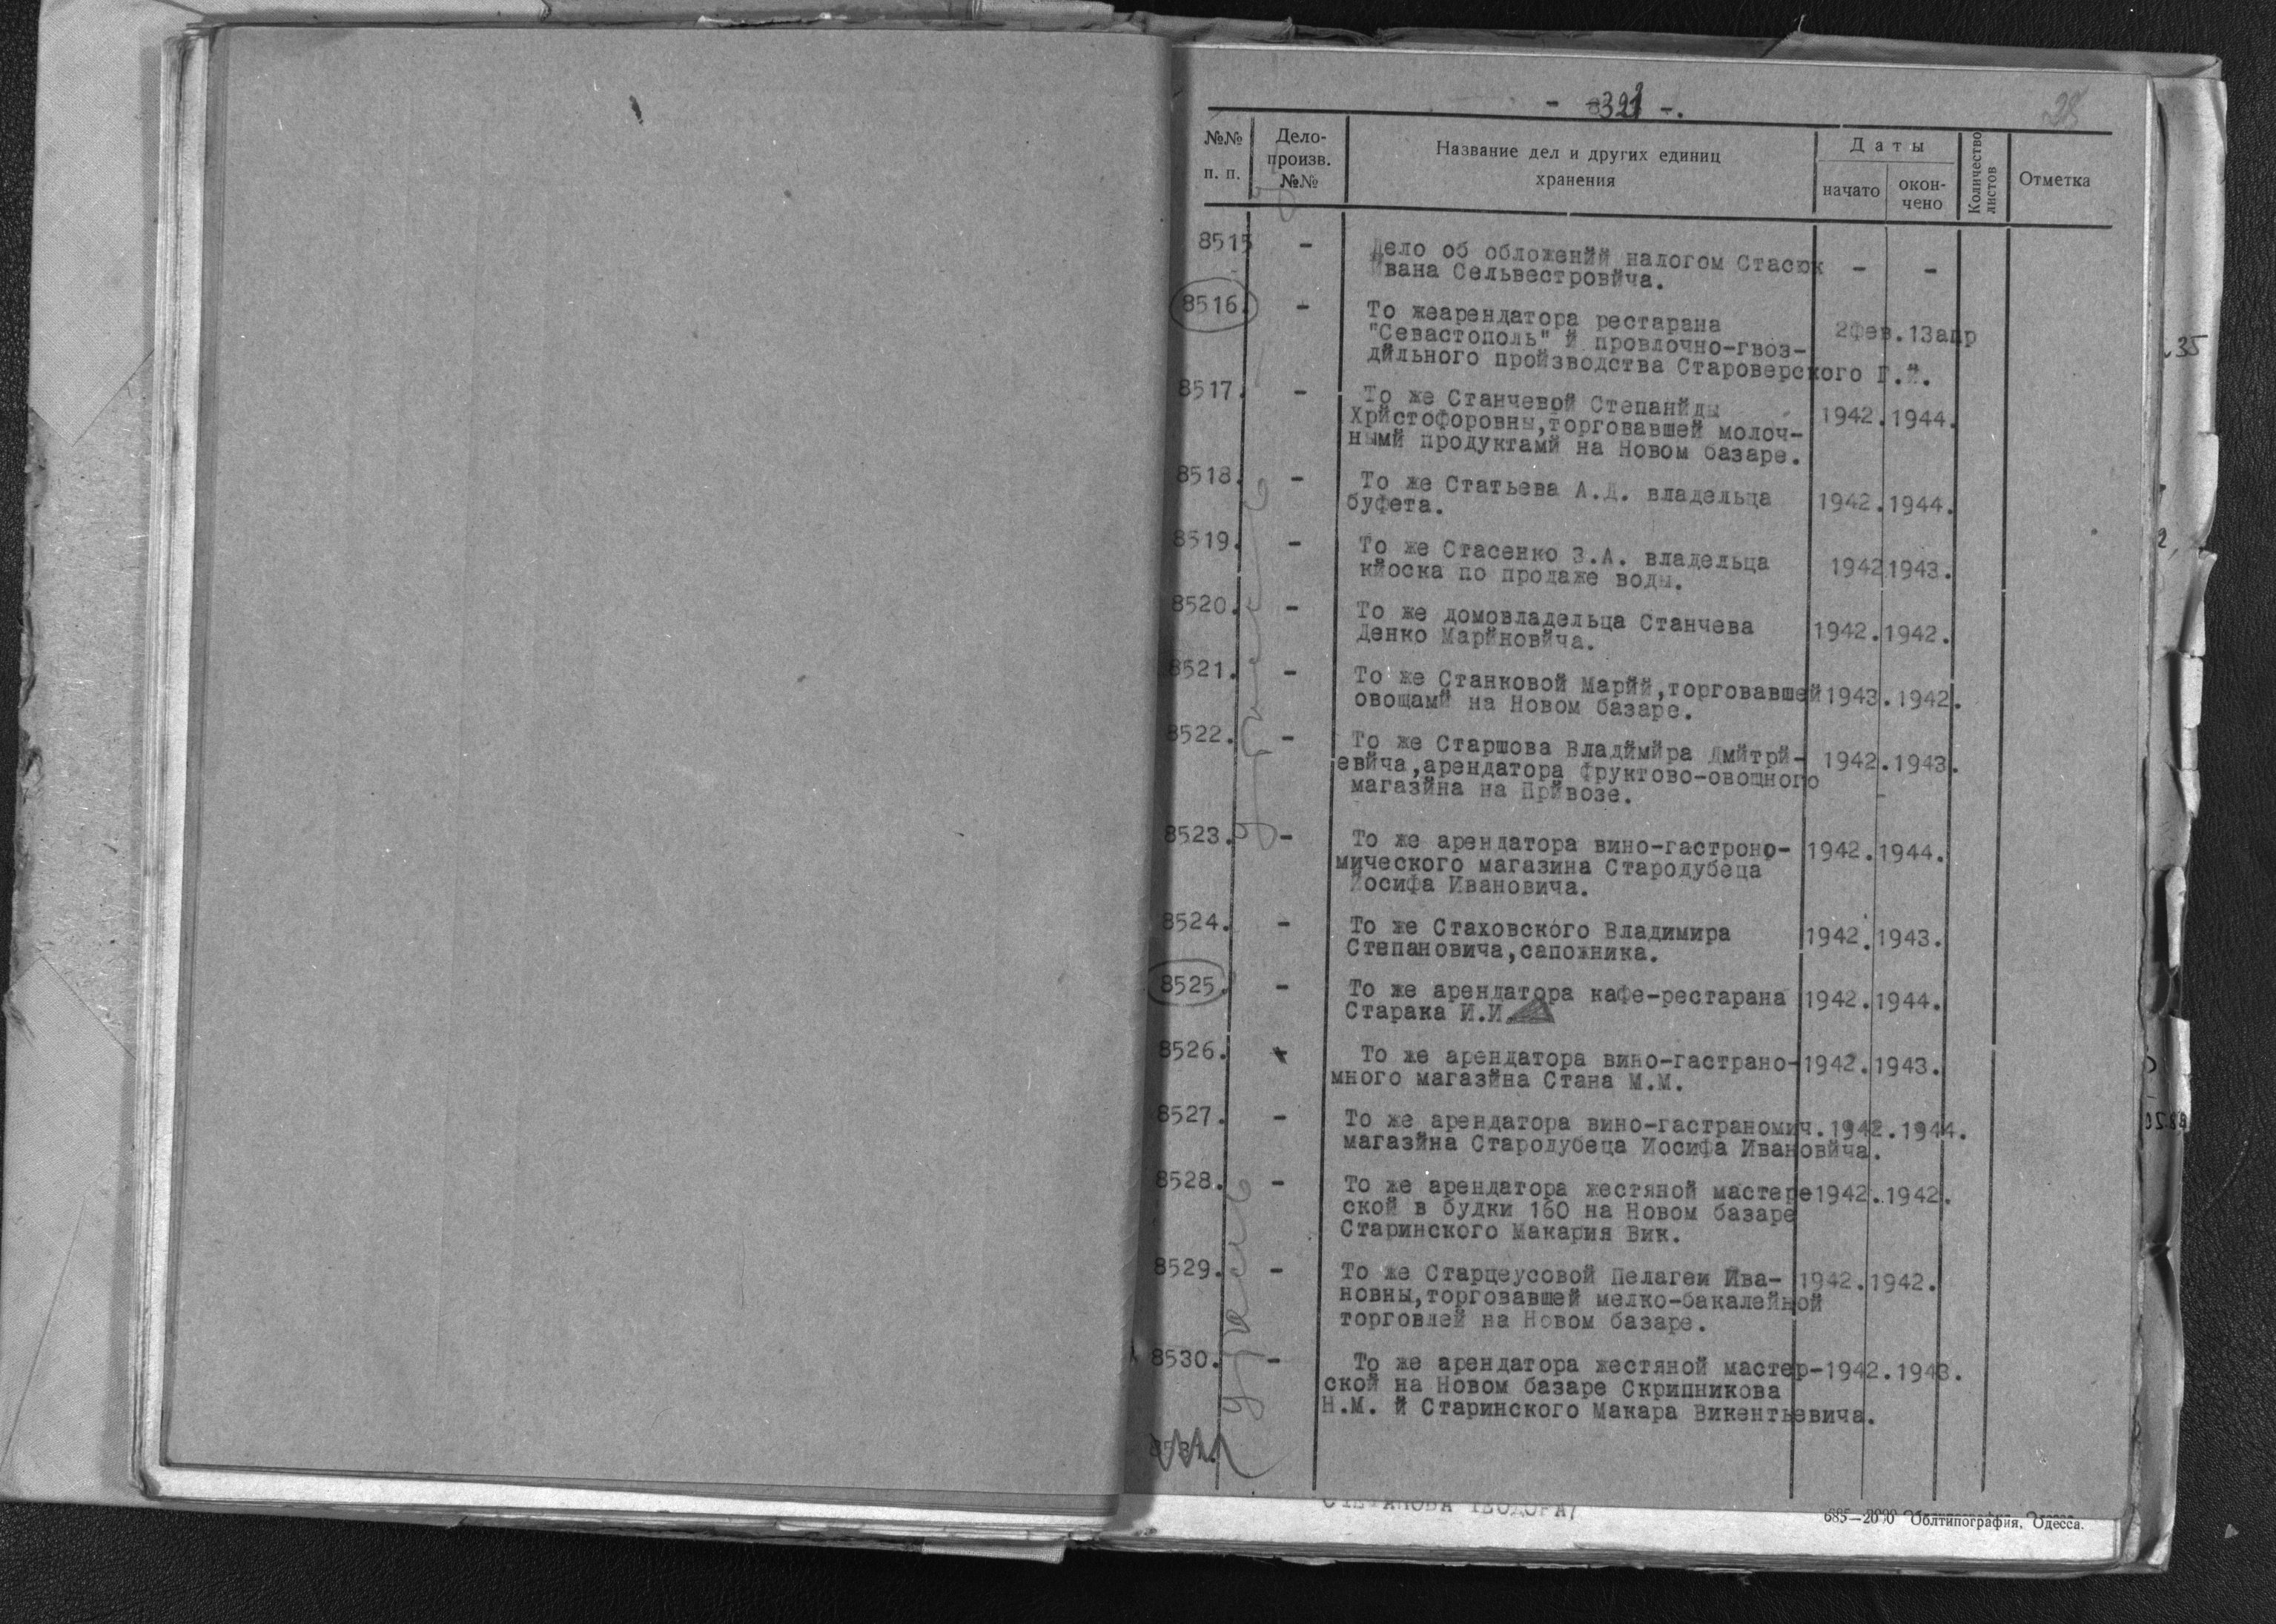 28
№№ п. п.
Дело-произв. №№
Название дел и других единиц хранения
Даты
начато
окон-чено
Количество листов
Отметка
8515 - Дело об обложенйй налогом Стасюк - -
Ивана Сельвестровйча.
8516. - То жеарендатора рестарана
"Севастополь" й провлочно-гвоз- 2фев. 13апр
дйльного пройзводства Староверского Г.Й.
8517. - То же Станчевой Степанйды 1942. 1944.
Хрйстофоровны,торговавшей молоч-
нымй продуктамй на Новом базаре.
8518. - То же Статьева А.Д. владельца 1942. 1944.
буфета.
8519. - То же Стасенко З.А. владельца 1942 1943.
кйоска по продаже воды.
8520. - То же домовладельца Станчева 1942. 1942.
Денко Марйновйча.
8521. - То же Станковой Марйй,торговавшей 1943. 1942.
овощамй на Новом базаре.
8522. - То же Старшова Владймйра Дмйтрй- 1942. 1943.
евйча,арендатора фруктово-овощного
магазйна на Прйвозе.
8523. - То же арендатора вино-гастроно- 1942. 1944.
мического магазина Стародубеца
Йосифа Ивановича.
8524. - То же Стаховского Владимира 1942. 1943.
Степановича,сапожника.
8525. - То же арендатора кафе-рестарана 1942. 1944.
Старака И.И.
8526. - То же арендатора вино-гастрано- 1942. 1943.
много магазйна Стана М.М.
8527. - То же арендатора вино-гастраномич. 1942. 1944.
магазйна Стародубеца Иосифа Ивановйча.
8528. - То же арендатора жестяной мастере 1942. 1942.
ской в будки 160 на Новом базаре
Старинского Макария Вик.
8529. - То же Старцеусовой Пелагеи Ива- 1942. 1942.
новны,торговавшей мелко-бакалейной
торговлей на Новом базаре.
8530. - То же арендатора жестяной мастер- 1942. 1943.
ской на Новом базаре Скрипникова
Н.М. й Старинского Макара Викентьевича.
8531.
685—2000 Облтипография, Одесса.
35